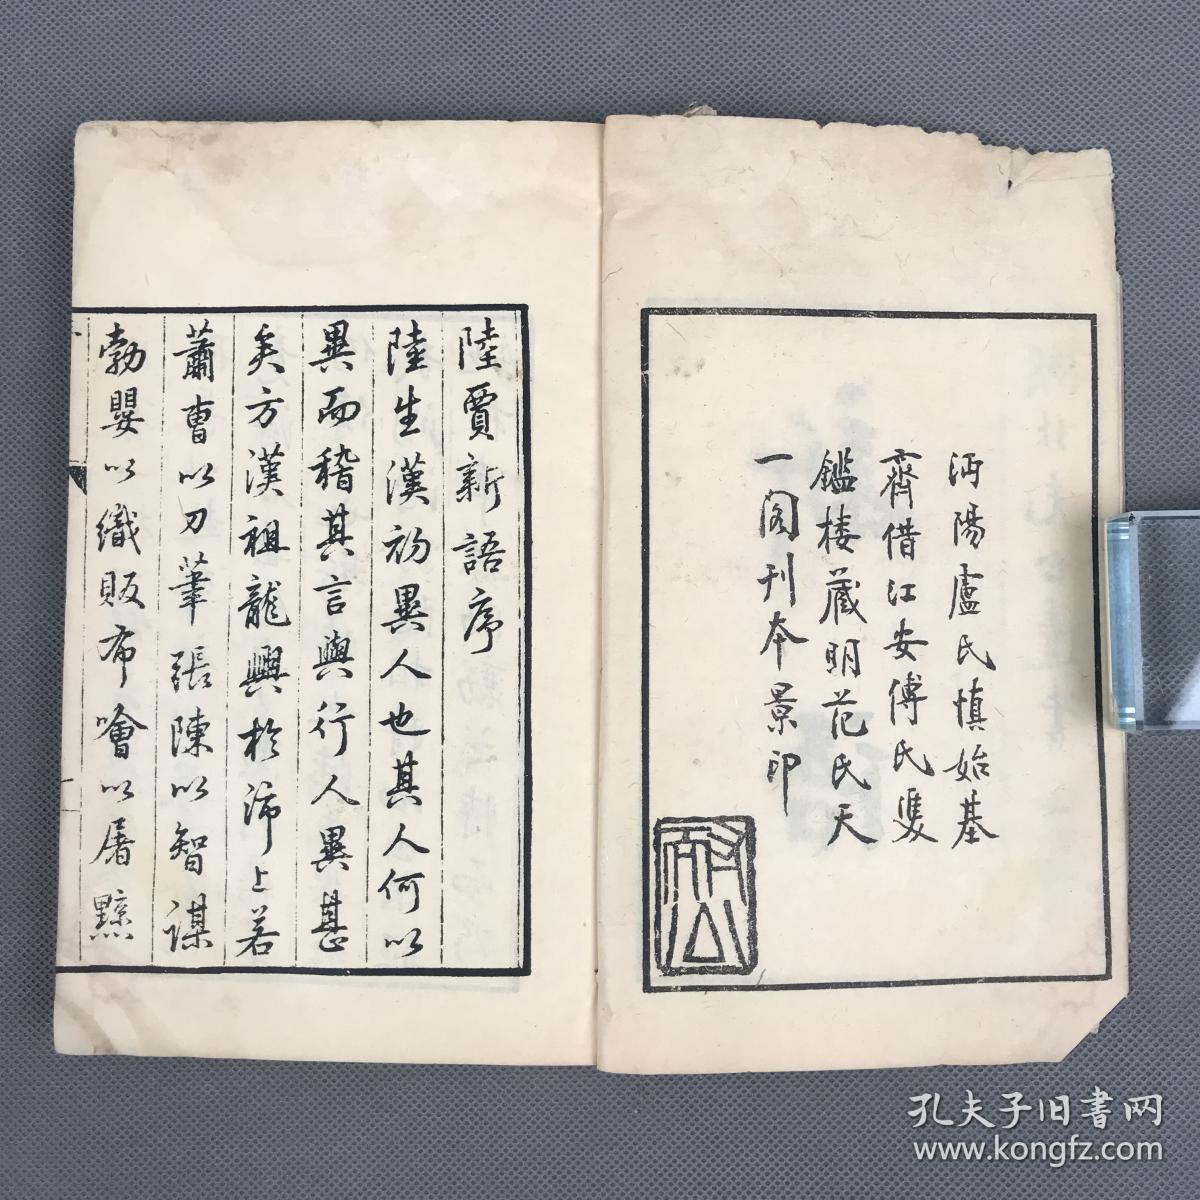 沔陽盧氏慎始基
齋借江安傅氏雙
鑑樓藏明范氏天
一閣刊本景印
陸賈新語序
陸生漢初異人也其人何以
異而稽其言與行人異甚
矣方漢祖龍興於沛上若
蕭曹以刀筆張陳以智謀
勃嬰以織販布噲以屠黥
孔夫子旧书网
www.kongfz.com